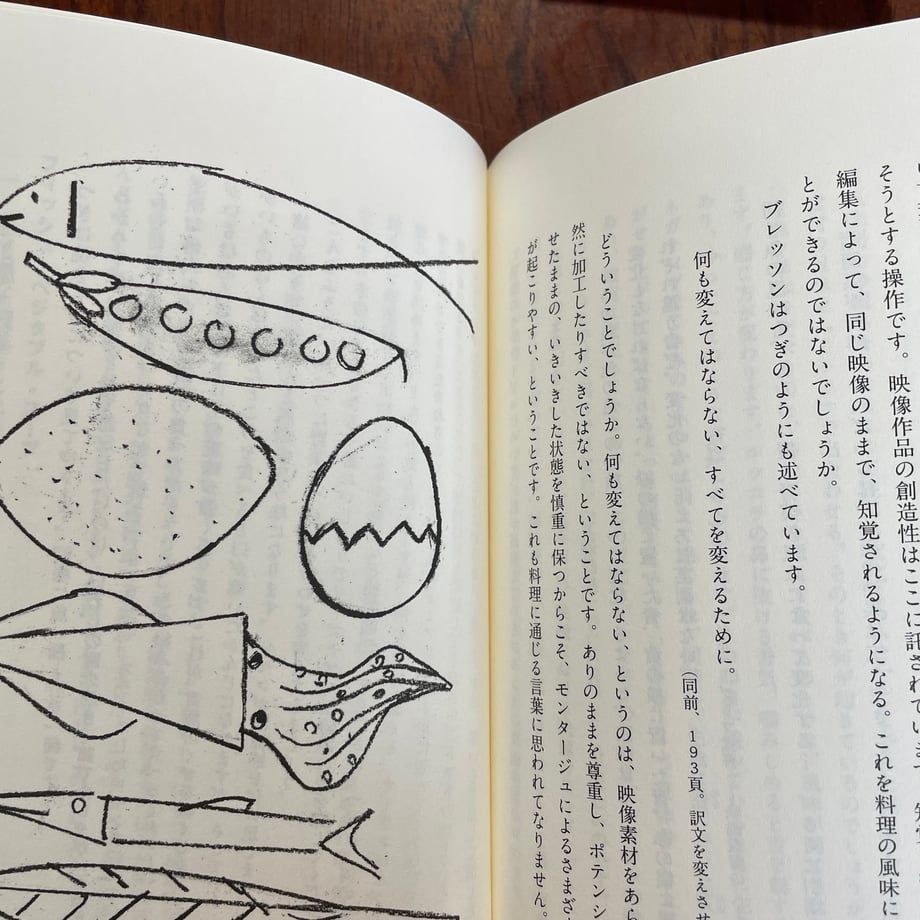 そうとする操作です。映像作品の創造性はここに託されてい
編集によって、同じ映像のままで、知覚されるようになる。これを料理の風味に
とができるのではないでしょうか。
ブレッソンはつぎのようにも述べています。
何も変えてはならない、すべてを変えるために。
(同前、193頁。訳文を変えさせ
どういうことでしょうか。何も変えてはならない、というのは、映像素材をあら
然に加工したりすべきではない、ということです。ありのままを尊重し、ポテンシ
せたままの、いきいきした状態を慎重に保つからこそ、モンタージュによるさまざ
が起こりやすい、ということです。これも料理に通じる言葉に思われてなりません。